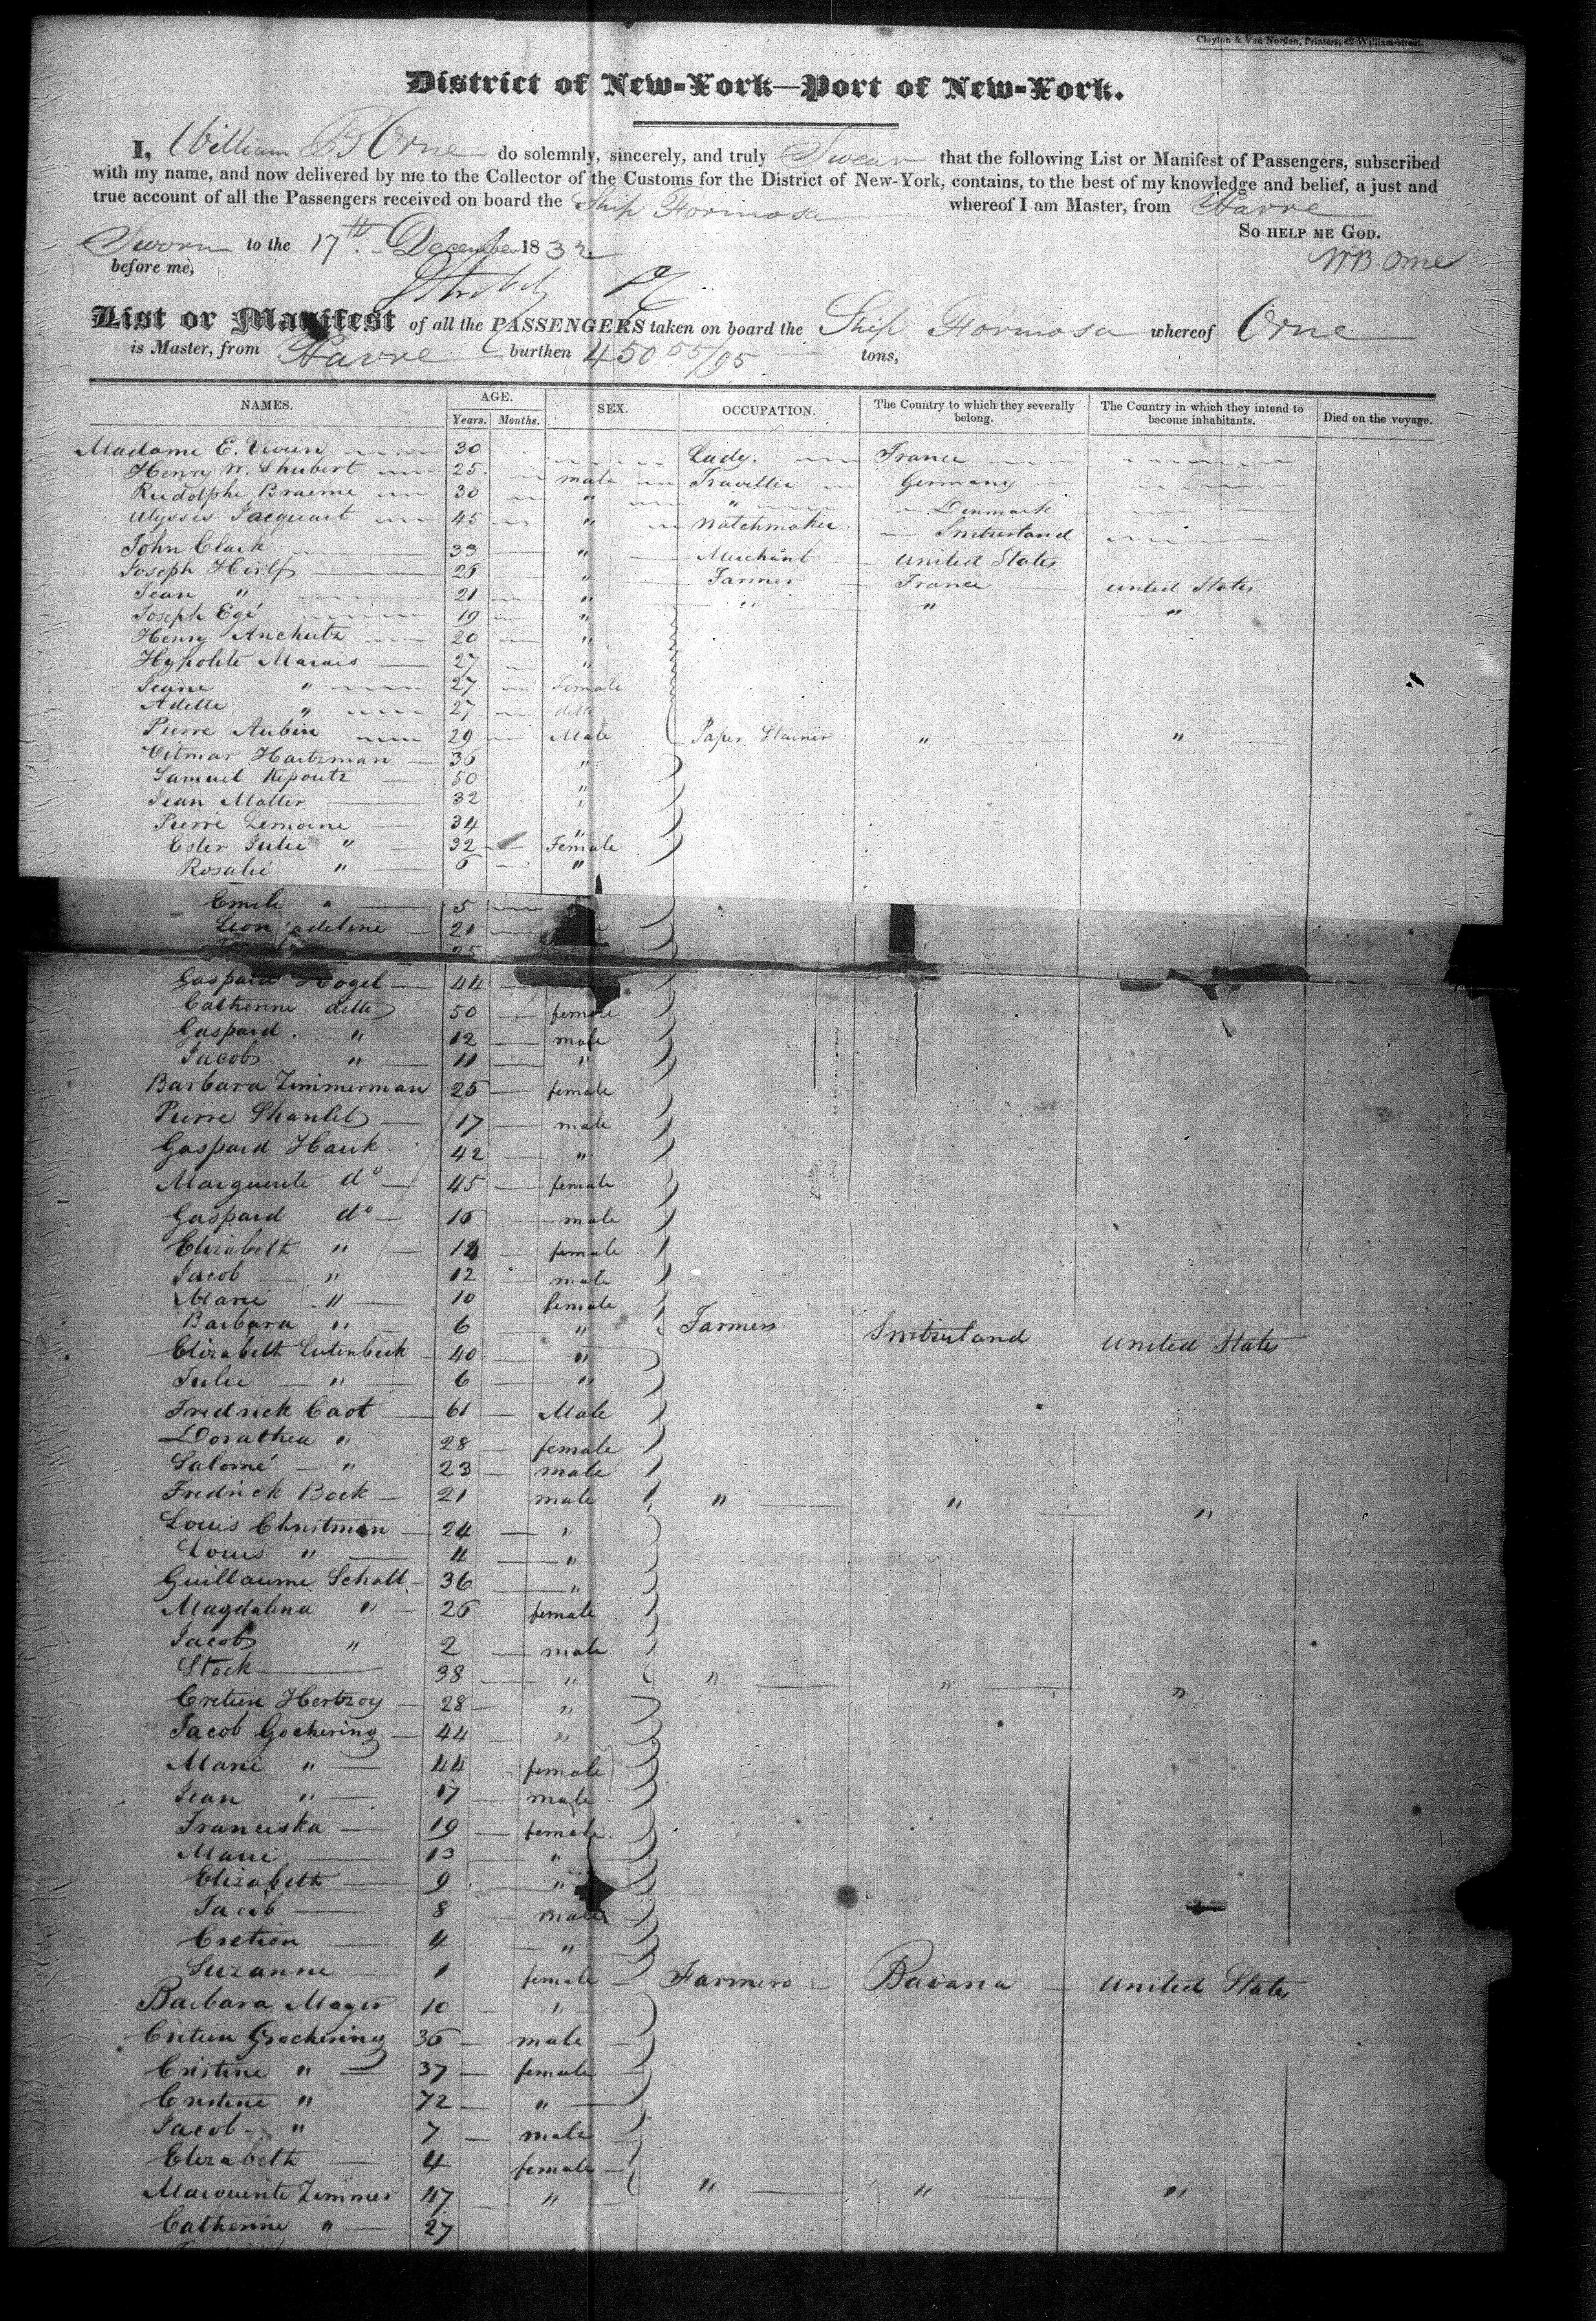 Clayton & Van Norden, Printers, 42 William-street.
District of New-York—Port of New-York.
I, William B Orne do solemnly, sincerely, and truly Swear that the following List or Manifest of Passengers, subscribed
with my name, and now delivered by me to the Collector of the Customs for the District of New-York, contains, to the best of my knowledge and belief, a just and
true account of all the Passengers received on board the Ship Formosa whereof I am Master, from Havre
So help me God.
Sworn to the 17th December 1832
before me,
W.B. Orne
List or Manifest of all the PASSENGERS taken on board the Ship Formosa whereof Orne
is Master, from Havre burthen 450 55/95 tons,
NAMES. AGE. Years. Months. SEX. OCCUPATION. The Country to which they severally belong. The Country in which they intend to become inhabitants. Died on the voyage.
Madame E. 30 Lady. France
Henry W. Shubert 25 male Traveller Germany
Rudolphe Braeme 30 " " Denmark
Ulysses Jacquart 45 " Watchmaker Switzerland
John Clark 33 " Merchant United States
Joseph 26 " Farmer France United States
Jean " 21 " " " "
Joseph Egé 19 "
Henry Anchutz 20 "
Hypolite Marais 27 "
Jeane " 27 Female
Adelle " 27 ditto
Pierre Aubin 29 Male Paper Stainer " "
Vitmar Hartzman 36 "
Samuel 50 "
Jean Moller 32 "
Pierre Lemoine 34 "
Ester Julie " 32 Female
Rosalié " 6 "
Emile " 5
Leon adeline 21
25
Gaspard Hogel 44
Catherine ditto 50 female
Gaspard " 12 male
Jacob " 11 "
Barbara Zimmerman 25 female
Pierre 17 male
Gaspard Hauk 42 "
Marguerite do 45 female
Gaspard do 16 male
Elizabeth " female
Jacob " 12 male
Marie " 10 female
Barbara " 6 " Farmers Switzerland United States
Elizabeth Lutenbeck 40 "
Julie " 6 "
Fredrick Caot 61 Male
Dorathea " 28 female
Salomé " 23 male
Fredrick Bock 21 male " " "
Louis Christman 24 "
Louis " 4 "
Guillaume Schall 36 "
Magdalena " 26 female
Jacob " 2 male
Stock 38 " " " "
Cretien Hertzoy 28 "
Jacob Gochering 44 "
Marie " 44 female
Jean " 17 male
Franciska 19 female
Marie 13 "
Elizabeth 9 "
Jacob 8 male
Cretien 4 "
Suzanne 1 female Farmers Bavaria United States
Barbara Mayer 10 "
Cretien Grochering 36 male
Cristine " 37 female
Cristine " 72 "
Jacob " 7 male
Elizabeth 4 female
Marguerite Zimmer 47 " " " "
Catherine " 27